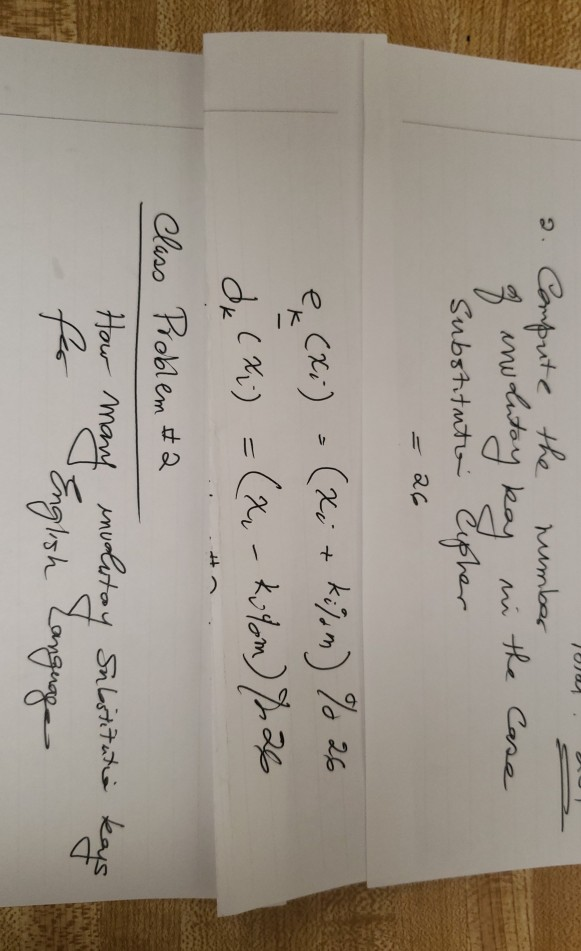 2. Compute the number
of involutory key in the case
Substitution Cipher
= 26
e_k (x_i) = (x_i + k_i%m) % 26
d_k (x_i) = (x_i - k_i%m) % 26
Class Problem # 2
How many involutory Substitution keys
for English Language